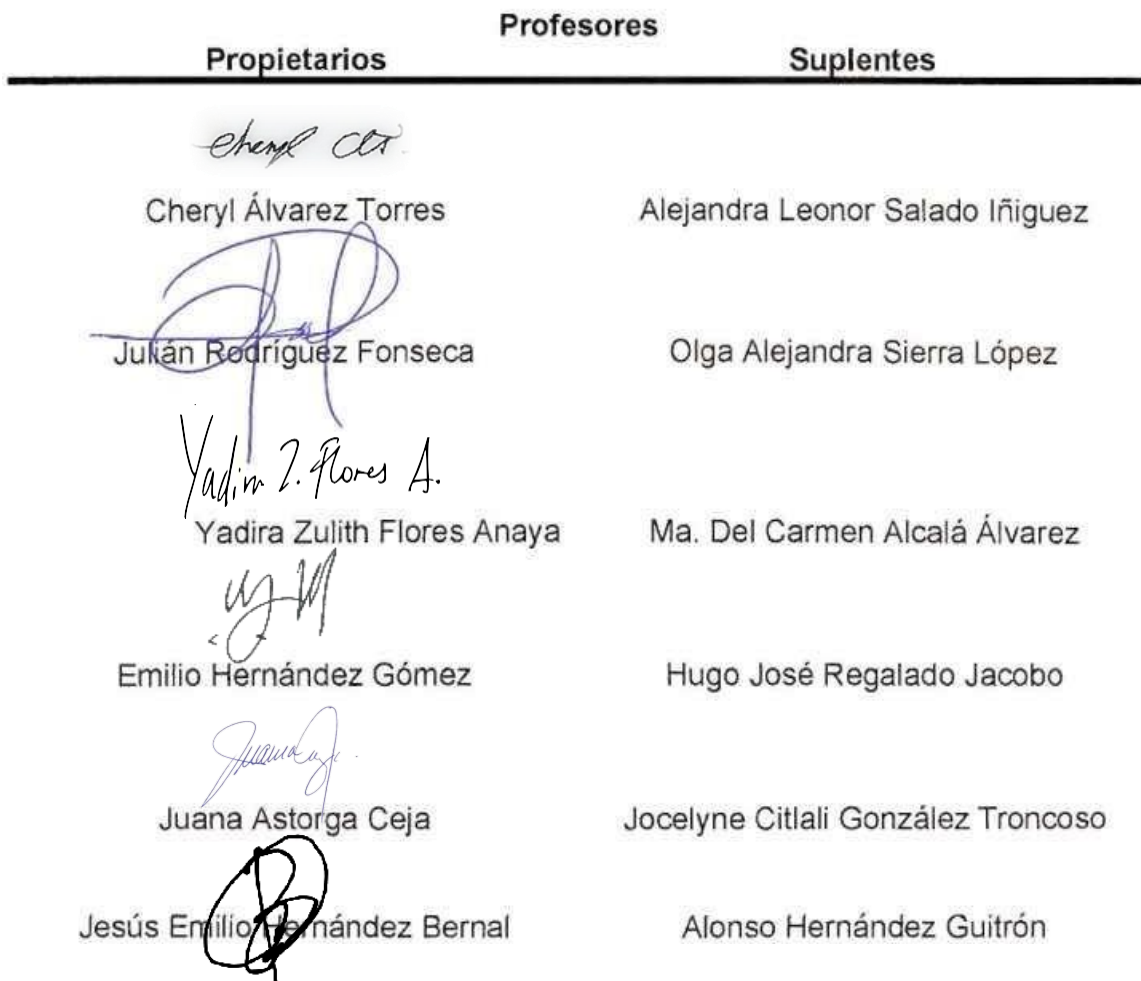 Profesores
Propietarios Suplentes
Cheryl
Cheryl Álvarez Torres Alejandra Leonor Salado Iñiguez
Julián Rodríguez Fonseca Olga Alejandra Sierra López
Yadira Z. Flores A.
Yadira Zulith Flores Anaya Ma. Del Carmen Alcalá Álvarez
Emilio Hernández Gómez Hugo José Regalado Jacobo
Juana Astorga Ceja Jocelyne Citlali González Troncoso
Jesús Emilio Hernández Bernal Alonso Hernández Guitrón